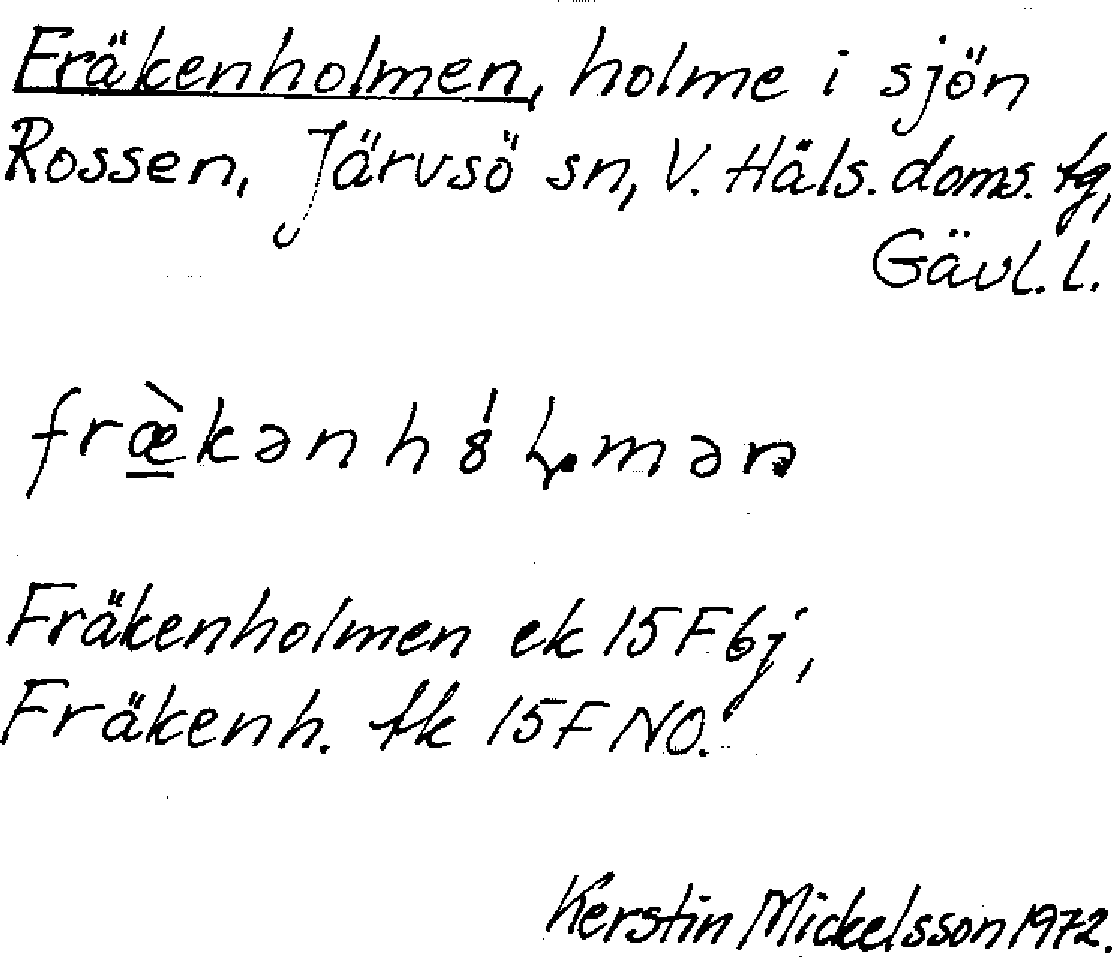 Fräkenholmen, holme i sjön
Rossen, Järvsö sn, V. Häls. doms. tg,
Gävl. l.
Fräkenholmen ek 15F6j,
Fräkenh. tk 15F NO.
Kerstin Mickelsson 1972.